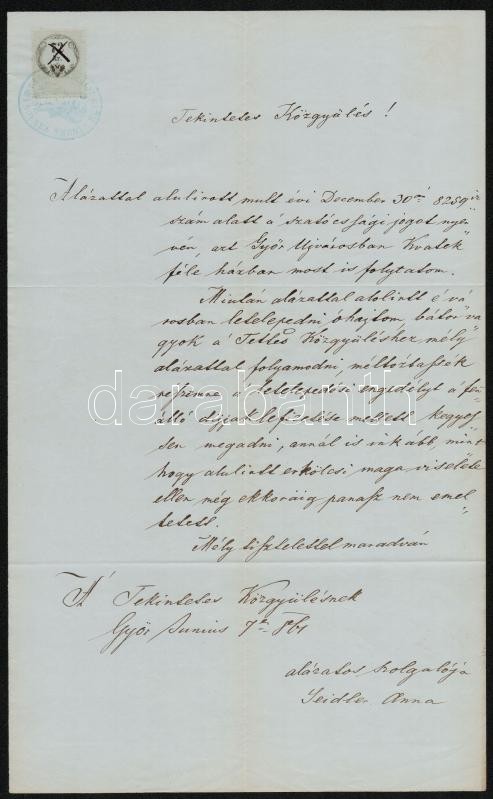 Tekintetes Közgyülés!
Alázattal alulirott mult évi December 30án 8259ik
szám alatt a szatócssági jogot nyer„
ven, azt Győr Ujvárosban Kvatek
féle házban most is folytatom.
Miután alázattal alolirott é vá„
rosban letelepedni óhajtom, bátor va„
gyok á Tettes Közgyüléshez mély
alázattal folyamodni, méltóztassék
részemre á letelepedési engedélyt á fen„
álló dijjak lefizetése mellett kegyes„
sen megadni, annál is inkább, mint
hogy alulirott erkölcsi maga viselete
ellen még ekkoráig panasz nem emel„
tetett.
Mély tisztelettel maradván
darabanth
Á Tekintetes Közgyülésnek
Győr Junius 7én
alázatos szolgálója
Seidler Anna